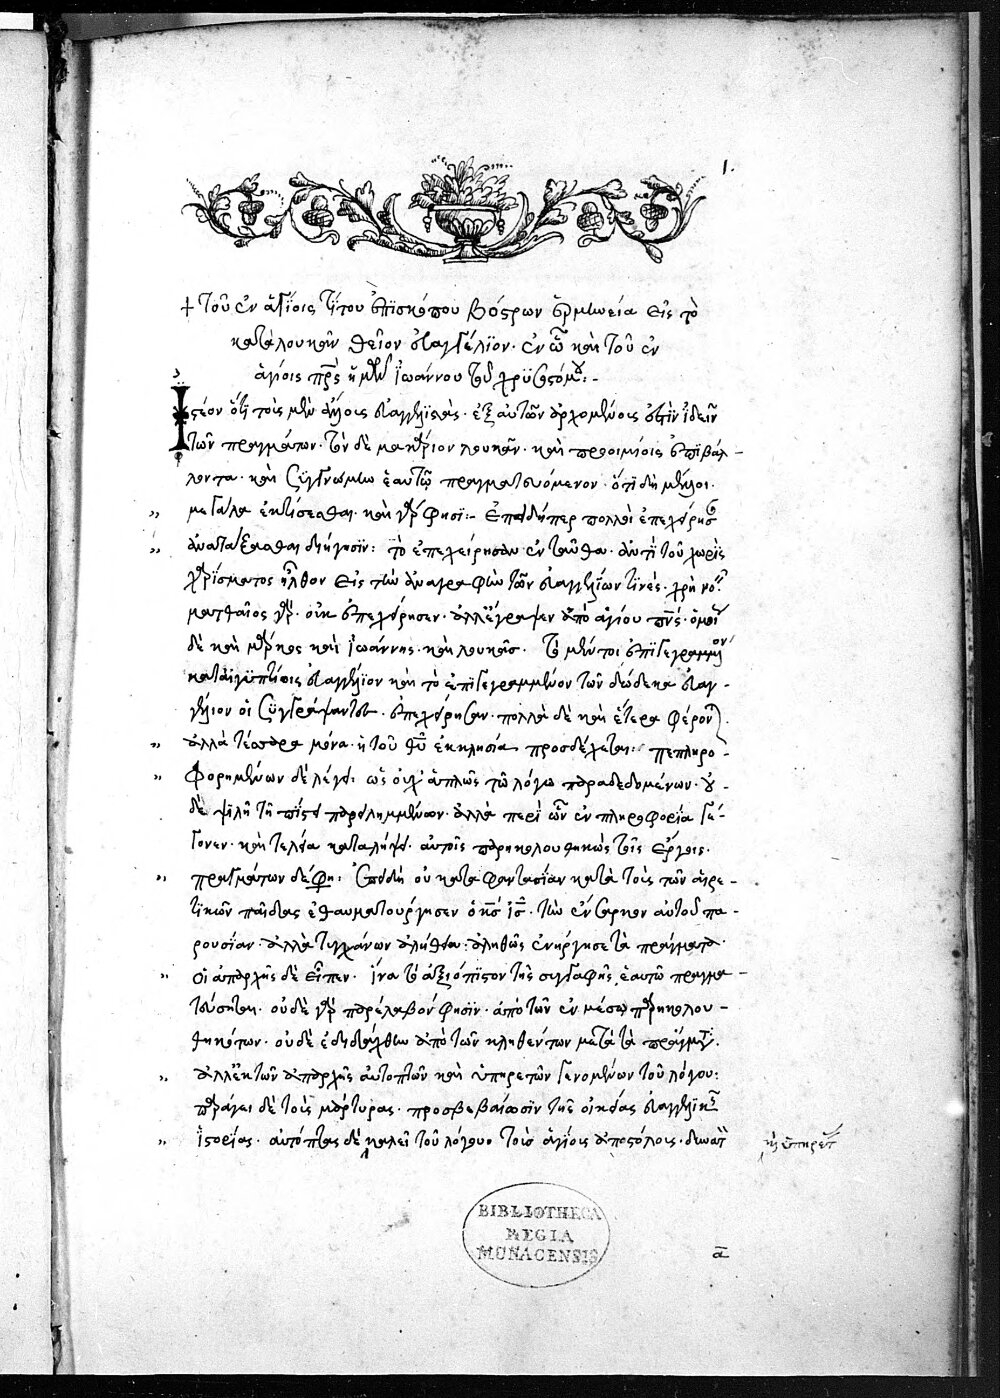 1.
+ Τοῦ ἐν ἁγίοις Τίτου ἐπισκόπου Βόστρων ἑρμηνεία εἰς τὸ
κατὰ λουκᾶν θεῖον εὐαγγέλϊον· ἐν ὧ καὶ τοῦ ἐν
ἁγίοις πρς ἡμῶν Ἰωάννου τοῦ χρυσοστόμου:-
Ἰστέον ὅτι τοῖς μὲν ἄλλοις εὐαγγελισταῖς· ἐξ αὐτῶν ἀρχομένοις ἐστὶν ἰδεῖν
τῶν πραγμάτων· τὸν δὲ μακάριον λουκᾶν· καὶ προοιμίοις ἐπιβάλ-
λοντα· καὶ συγγνώμην ἑαυτῷ πραγματευόμενον· ὅτι δὴ μέλλοι
μεγάλα ἐκτίσεσθαι· καὶ γάρ φησϊ:- Ἐπειδήπερ πολλοὶ ἐπεχείρησαν
ἀνατάξασθαι διήγησϊν: τὸ ἐπεχείρησαν ἐνταῦθα· ἀντὶ τοῦ χωρὶς
χαρίσματος ἦλθον εἰς τὴν ἀναγραφὴν τῶν εὐαγγελίων τινές·
ματθαῖος γάρ· οὐκ ἐπεχείρησεν· ἀλλ' ἔγραψεν ἀπὸ ἁγίου πνς· ὁμοίως
δὲ καὶ μάρκος καὶ Ἰωάννης· καὶ λουκᾶς· τὸ μέντοι ἐπιγεγραμμένον
κατ' αἰγυπτίοις εὐαγγέλιον καὶ τὸ ἐπιγεγραμμένον τῶν δώδεκα εὐαγ-
γέλιον οἱ συγγράψαντες· ἐπεχείρησαν· πολλὰ δὲ καὶ ἕτερα φέρονται
ἀλλὰ τέσσαρα μόνα· ἡ τοῦ θυ ἐκκλησία προσδέχεται: πεπληρο-
φορημένων δὲ λέγει· ὡς οὐχ' ἁπλῶς τῷ λόγω παραδεδομένων· οὐ-
δὲ ψιλῆ τῆ πίστει παρειλημμένων· ἀλλὰ περὶ ὧν ἐν πληροφορία γέ-
γονεν· καὶ τελεία καταλήψει· αὐτοῖς παρηκολουθηκὼς τοῖς ἔργοις·
πραγμάτων δέ φη: Ἐπειδὴ οὐ κατα φαντασίαν κατὰ τοὺς τῶν αἱρε-
τικῶν παῖδας ἐθαυματούργησεν ὁ κς ις· τὴν ἔνσαρκον αὐτοῦ πα-
ρουσίαν· ἀλλὰ τυγχάνων ἀλήθεια: ἀληθῶς ἐνήργησε τὰ πράγματα·
Οἱ ἀπαρχῆς δὲ εἶπεν· ἵνα τὸ ἀξιόπϊστον τῆς συγγραφῆς ἑαυτῶ πραγμα-
τεύσηται· οὐδὲ γὰρ παρέλαβον φησϊν· ἀπὸ τῶν ἐν μέσω παρηκολου-
θηκότων· οὐδὲ ἐδιδάχθην ἀπὸ τῶν κληθέντων μετὰ τὰ πράγματα·
ἀλλ' ἐκ τῶν ἀπαρχῆς αὐτοπτῶν καὶ ὑπηρετῶν γενομένων τοῦ λόγου:
παράγει δὲ τοὺς μάρτυρας· προσβεβαίωσϊν τῆς οἰκείας εὐαγγελικῆς
ἱστορίας· αὐτόπτας δὲ καλεῖ τοῦ λόγου· τοὺς ἁγίους ἀποστόλους·
καὶ ὑπηρέτας
BIBLIOTHECA
REGIA
MONACENSIS
α